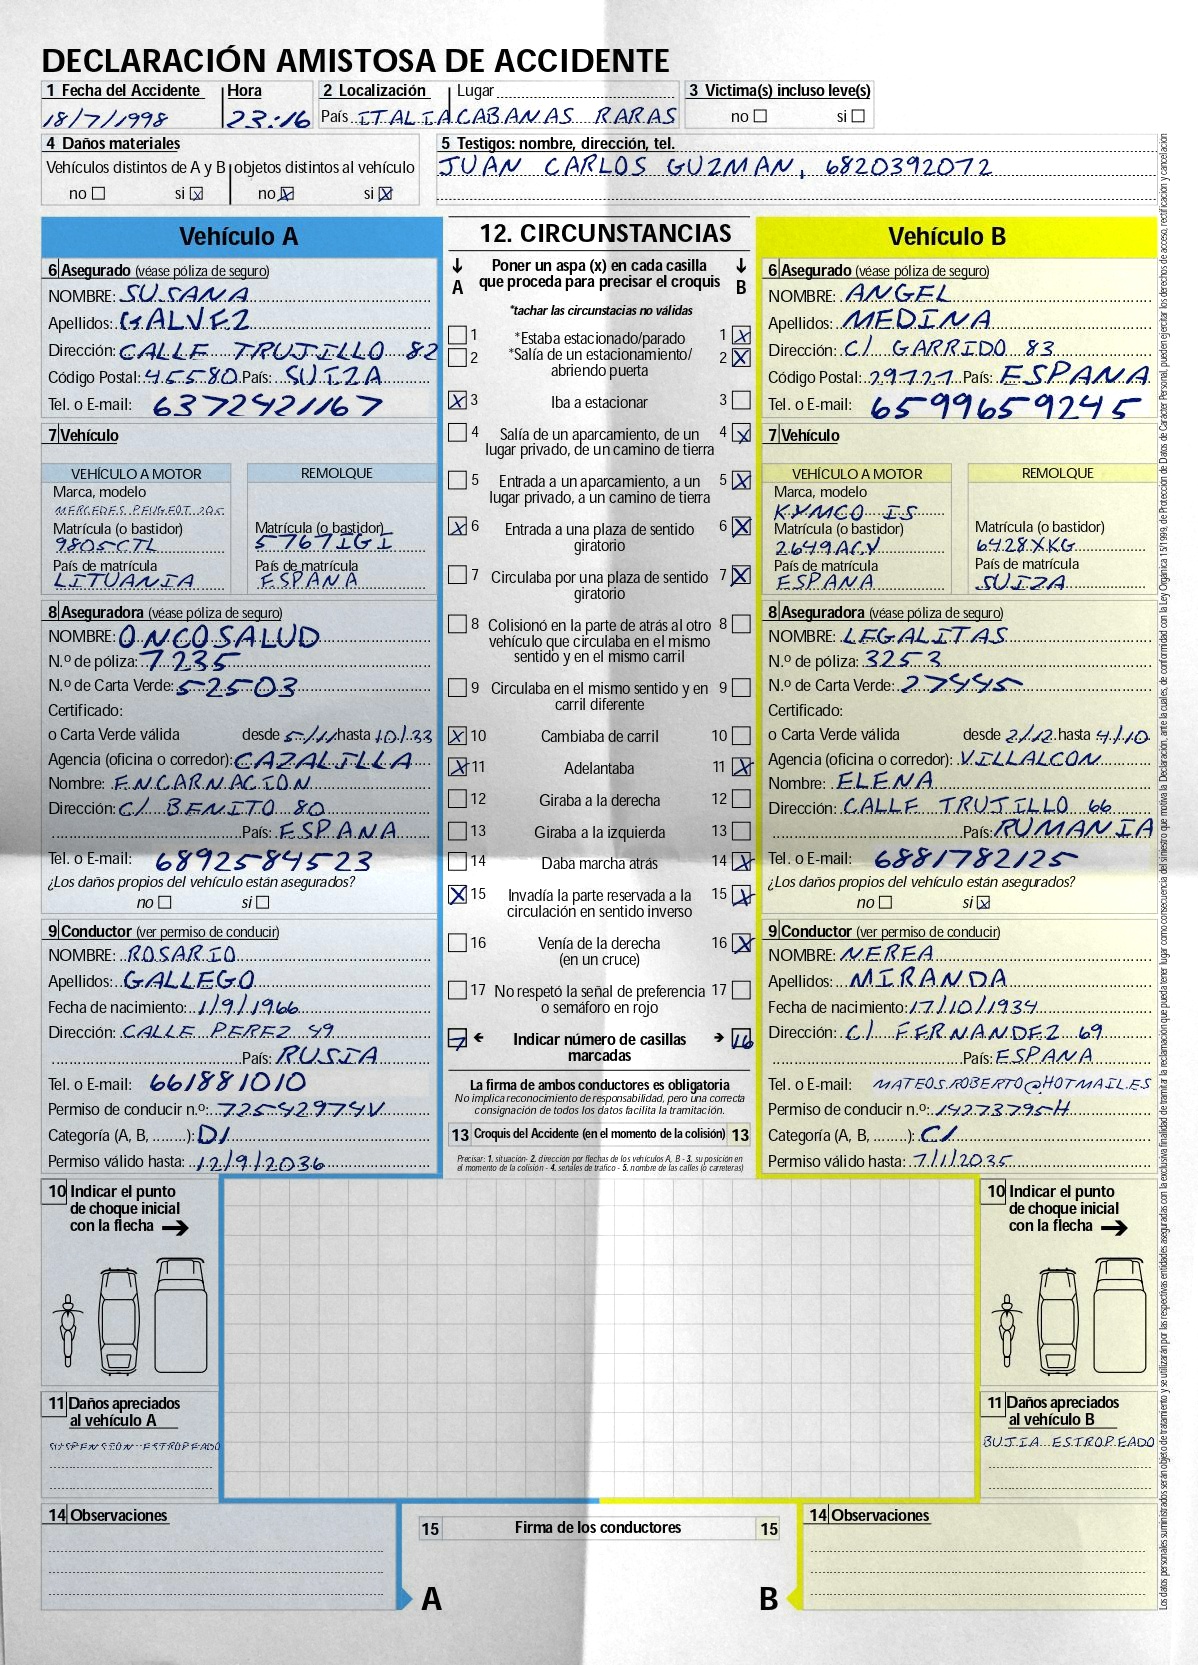 DECLARACIÓN AMISTOSA DE ACCIDENTE
1 Fecha del Accidente Hora 2 Localización Lugar 3 Victima(s) incluso leve(s)
18/7/1998 23:16 País ITALIA CABANAS RARAS no si
4 Daños materiales
Vehículos distintos de A y B objetos distintos al vehículo
no si x no x si x
5 Testigos: nombre, dirección, tel.
JUAN CARLOS GUZMAN, 6820392072
Vehículo A
6 Asegurado (véase póliza de seguro)
NOMBRE: SUSANA
Apellidos: GALVEZ
Dirección: CALLE TRUJILLO 82
Código Postal: 45580 País: SUIZA
Tel. o E-mail: 6372421167
7 Vehículo
VEHÍCULO A MOTOR REMOLQUE
Marca, modelo
MERCEDES PEUGEOT 205
Matrícula (o bastidor) Matrícula (o bastidor)
9805CTL 5767IGI
País de matrícula País de matrícula
LITUANIA ESPANA
8 Aseguradora (véase póliza de seguro)
NOMBRE: ONCOSALUD
N.º de póliza: 7235
N.º de Carta Verde: 52503
Certificado:
o Carta Verde válida desde 5/11 hasta 10/33
Agencia (oficina o corredor): CAZALILLA
Nombre: ENCARNACION
Dirección: C/ BENITO 80
País: ESPANA
Tel. o E-mail: 6892584523
¿Los daños propios del vehículo están asegurados?
no si
9 Conductor (ver permiso de conducir)
NOMBRE: ROSARIO
Apellidos: GALLEGO
Fecha de nacimiento: 1/9/1966
Dirección: CALLE PEREZ 49
País: RUSIA
Tel. o E-mail: 661881010
Permiso de conducir n.º: 72542974V
Categoría (A, B, ........): D1
Permiso válido hasta: 12/9/2036
12. CIRCUNSTANCIAS
A Poner un aspa (x) en cada casilla que proceda para precisar el croquis B
*tachar las circunstacias no válidas
1 *Estaba estacionado/parado 1 x
2 *Salía de un estacionamiento/ abriendo puerta 2 x
x 3 Iba a estacionar 3
4 Salía de un aparcamiento, de un lugar privado, de un camino de tierra 4 x
5 Entrada a un aparcamiento, a un lugar privado, a un camino de tierra 5 x
x 6 Entrada a una plaza de sentido giratorio 6 x
7 Circulaba por una plaza de sentido giratorio 7 x
8 Colisionó en la parte de atrás al otro vehículo que circulaba en el mismo sentido y en el mismo carril 8
9 Circulaba en el mismo sentido y en carril diferente 9
x 10 Cambiaba de carril 10
x 11 Adelantaba 11 x
12 Giraba a la derecha 12
13 Giraba a la izquierda 13
14 Daba marcha atrás 14 x
x 15 Invadía la parte reservada a la circulación en sentido inverso 15 x
16 Venía de la derecha (en un cruce) 16 x
17 No respetó la señal de preferencia o semáforo en rojo 17
7 Indicar número de casillas marcadas 16
La firma de ambos conductores es obligatoria
No implica reconocimiento de responsabilidad, pero una correcta
consignación de todos los datos facilita la tramitación.
13 Croquis del Accidente (en el momento de la colisión) 13
Precisar: 1. situación- 2. dirección por flechas de los vehículos A, B - 3. su posición en
el momento de la colisión - 4. señales de tráfico - 5. nombre de las calles (o carreteras)
Vehículo B
6 Asegurado (véase póliza de seguro)
NOMBRE: ANGEL
Apellidos: MEDINA
Dirección: C/ GARRIDO 83
Código Postal: 29727 País: ESPANA
Tel. o E-mail: 6599659245
7 Vehículo
VEHÍCULO A MOTOR REMOLQUE
Marca, modelo
KYMCO IS
Matrícula (o bastidor) Matrícula (o bastidor)
2649ACV 6428XKG
País de matrícula País de matrícula
ESPANA SUIZA
8 Aseguradora (véase póliza de seguro)
NOMBRE: LEGALITAS
N.º de póliza: 3253
N.º de Carta Verde: 27445
Certificado:
o Carta Verde válida desde 2/12 hasta 4/10
Agencia (oficina o corredor): VILLALCON
Nombre: ELENA
Dirección: CALLE TRUJILLO 66
País: RUMANIA
Tel. o E-mail: 6881782125
¿Los daños propios del vehículo están asegurados?
no si x
9 Conductor (ver permiso de conducir)
NOMBRE: NEREA
Apellidos: MIRANDA
Fecha de nacimiento: 17/10/1934
Dirección: C/ FERNANDEZ 69
País: ESPANA
Tel. o E-mail: MATEOS.ROBERTO@HOTMAIL.ES
Permiso de conducir n.º: 14273795H
Categoría (A, B, ........): C1
Permiso válido hasta: 7/1/2035
10 Indicar el punto de choque inicial con la flecha
10 Indicar el punto de choque inicial con la flecha
11 Daños apreciados al vehículo A
SUSPENSION ESTROPEADO
11 Daños apreciados al vehículo B
BUJIA ESTROPEADO
14 Observaciones
15 Firma de los conductores 15
A B
14 Observaciones
Los datos personales suministrados serán objeto de tratamiento y se utilizarán por las respectivas entidades aseguradas con la exclusiva finalidad de tramitar la reclamación que pueda tener lugar como consecuencia del siniestro que motiva la Declaración, ante la cuales, de conformidad con la Ley Orgánica 15/1999, de Protección de Datos de Carácter Personal, pueden ejercitar los derechos de acceso, rectificación y cancelación